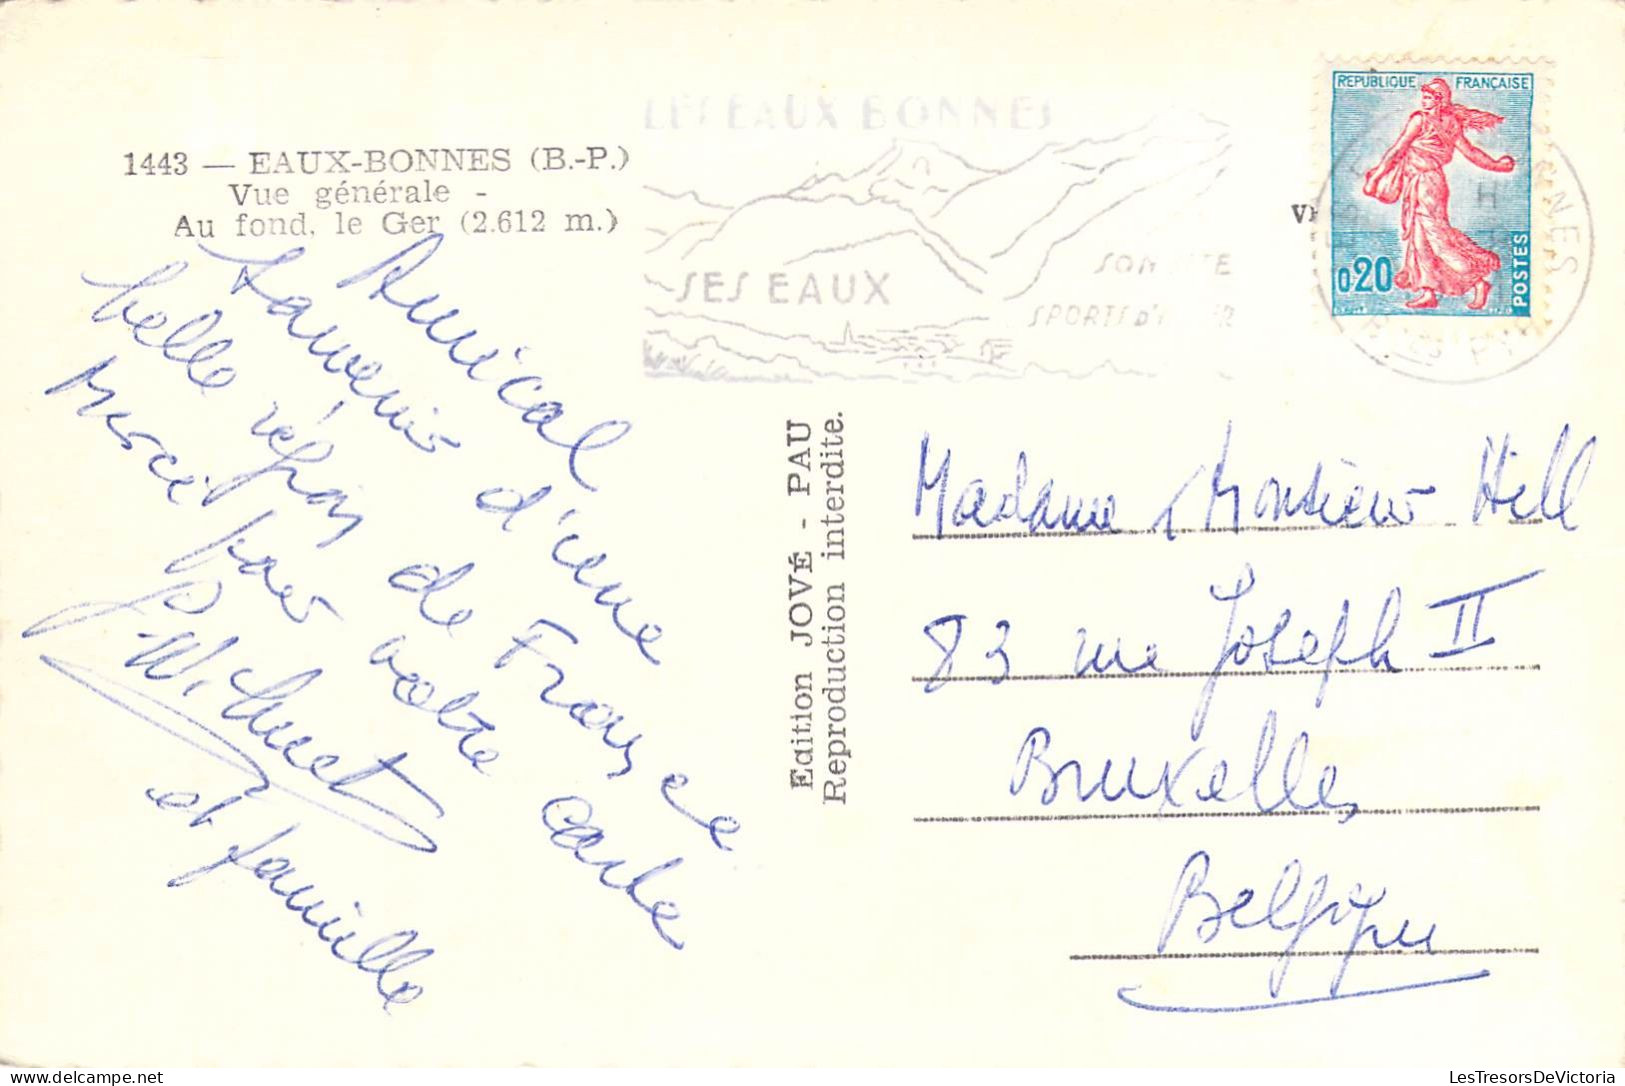 1443 — EAUX-BONNES (B.-P.)
Vue générale -
Au fond, le Ger (2.612 m.)
LES EAUX BONNES
SES EAUX
SON SITE
SPORTS D'HIVER
REPUBLIQUE FRANÇAISE
0,20
POSTES
Amical
souvenir d'une
belle région de France
Merci pour votre carte
P. Michuet
et famille
Edition JOVÉ - PAU
Reproduction interdite.
Madame Monsieur Hill
83 rue Joseph II
Bruxelles
Belgique
LesTresorsDeVictoria